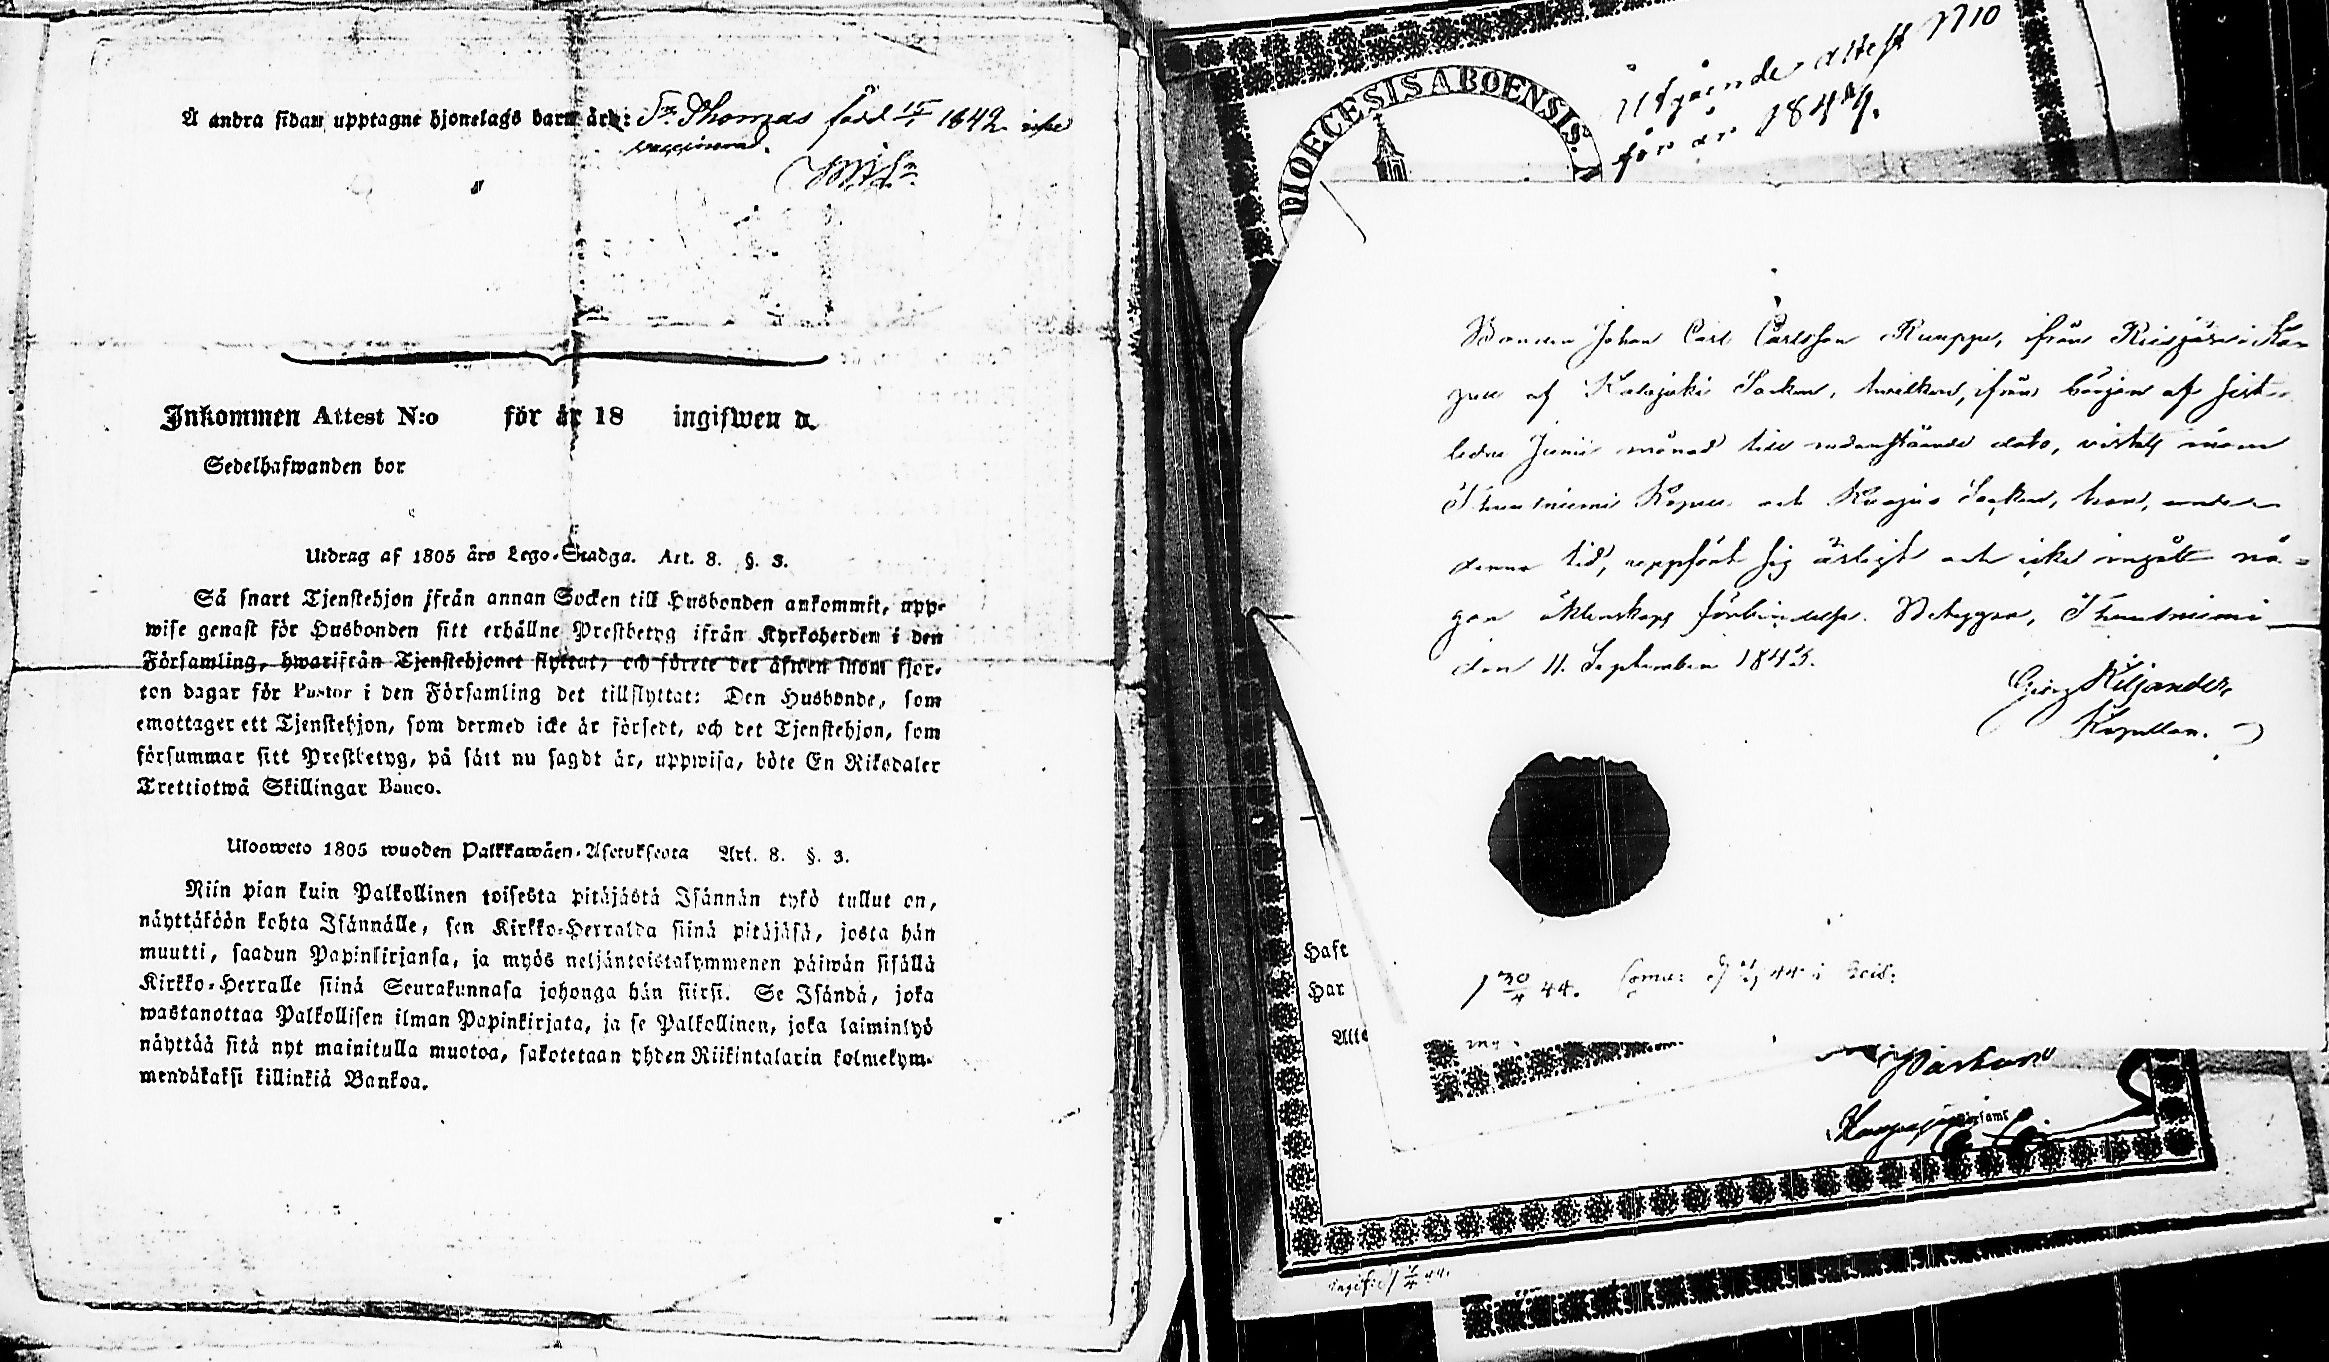 Å andra sidan upptagne hjonelags barn äro: Sn. Thomas född 1842 icke
vaccinerad.
Inkommen Attest N:o för år 18 ingifwen d.
Sedelhafwanden bor
Utdrag af 1805 års Lego-Stadga. Art. 8. §. 3.
Så snart Tjenstehjon ifrån annan Socken till Husbonden ankommit, upp-
wise genast för Husbonden sitt erhållne Prestbetyg ifrån Kyrkoherden i den
Församling, hwarifrån Tjenstehjonet flyttat, och förete det äfwen inom fjor-
ton dagar för Pastor i den Församling det tillflyttat: Den Husbonde, som
emottager ett Tjenstehjon, som dermed icke är försedt, och det Tjenstehjon, som
försummar sitt Prestbetyg, på sätt nu sagdt är, uppwisa, böte En Riksdaler
Trettiotwå Skillingar Banco.
Uloswето 1805 wuoden Palkkawäen-Asetuksesta Art. 8. §. 3.
Niin pian kuin Palkollinen toisesta pitäjästä Isännän tykö tullut on,
näyttäköön kohta Isännälle, sen Kirkko-Herralda siinä pitäjäsä, josta hän
muutti, saadun Papinkirjansa, ja myös neljäntoistakymmenen päiwän sisällä
Kirkko-Herralle siinä Seurakunnasa johonga hän siirsi. Se Isändä, joka
wastanottaa Palkollisen ilman Papinkirjata, ja se Palkollinen, joka laiminlyö
näyttää sitä nyt mainitulla muotoa, sakotetaan yhden Riikintalarin kolmekym-
mendäkaksi killinkiä Bankoa.
DIOECESIS ABOENSIS.
Utgående attest N 10
för år 1844.
Johan Carl Carlsson Ruuppa, ifrån Reisjärvi Ka-
pell af Kalajoki Socken, hvilken, ifrån början af sist-
ledne Junii månad till undanstående dato, vistats inom
Thuusniemi Kapell och Kuopio Socken, har, under
denna tid, uppfört sig ärligt och icke ingått nå-
gon äktenskaps förbindelse. Betygar, Thuusniemi
den 11. September 1843.
Georg Kiljander,
Kapellan.
Haft
Har
Atte
1 30/4 44.